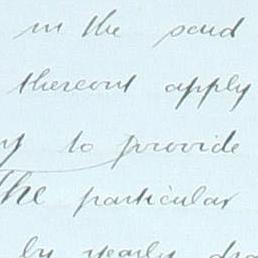 in the said
thereout apply
to provide
The particular
by yearly